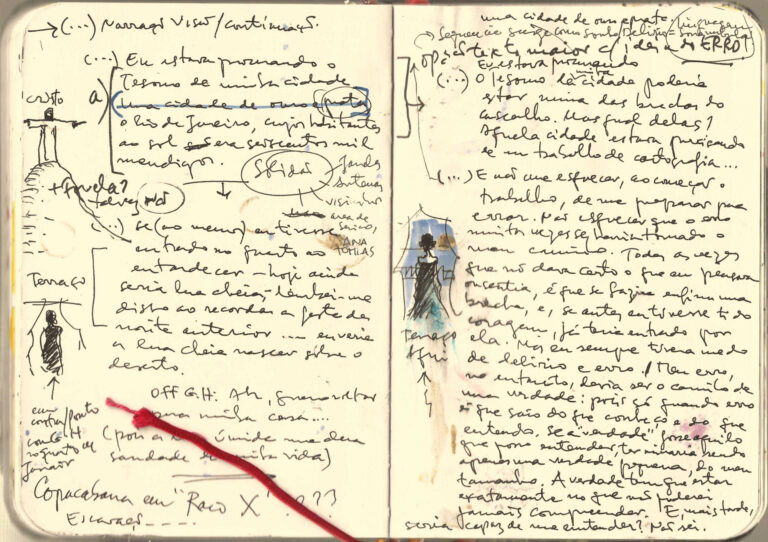 → (...) Narração Visão / continuação.
(...) Eu estava procurando o
tesouro de minha cidade
uma cidade de ouro e prata
o Rio de Janeiro, cujos habitantes
ao sol era seiscentos mil
mendigos.
cristo
a)
+ favela?
talvez não
Sólidos
Jardas
antenas
visinhos
área de
serviço,
ANA
TOMIAS
(...) Se (ao menos) entrasse
entrado no quarto ao
entardecer - hoje ainda
seria lua cheia, lembrei-me
disto ao recordar a festa da
noite anterior ... eu veria
a lua cheia nascer sobre o
deserto.
Terraço
em
contra/ponto
com GH
no quarto de
Off G.H. Ah, quero voltar
para minha casa....
úmida me dera
saudade de minha vida)
Copacabana em "Raio X" ???
Escavação ....
uma cidade de ouro e prata
c/ ideia do ERRO!
Eu estava procurando
(...) O tesouro da cidade poderia
estar numa das brechas do
cascalho. Mas qual delas?
Aquela cidade estava precisando
de um trabalho de cartografia...
(...) E não me esquecer, ao começar o
trabalho, de me preparar para
errar. Não esquecer que o erro
muitas vezes se havia tornado o
meu caminho. Todas as vezes
que não dava certo o que eu pensava
ou sentia, é que se fazia enfim uma
brecha, e, se antes eu tivesse tido
coragem, já teria entrado por
ela. Mas eu sempre tivera medo
de delírio e erro. / Meu erro,
no entanto, devia ser o caminho de
uma verdade: pois só quando erro
é que saio do que conheço e do que
entendo. Se a "verdade" fosse aquilo
que posso entender, terminaria sendo
apenas uma verdade pequena, do meu
tamanho. A verdade tem que estar
exatamente no que não poderei
jamais compreender. E, mais tarde,
seria capaz de me entender? Não sei.